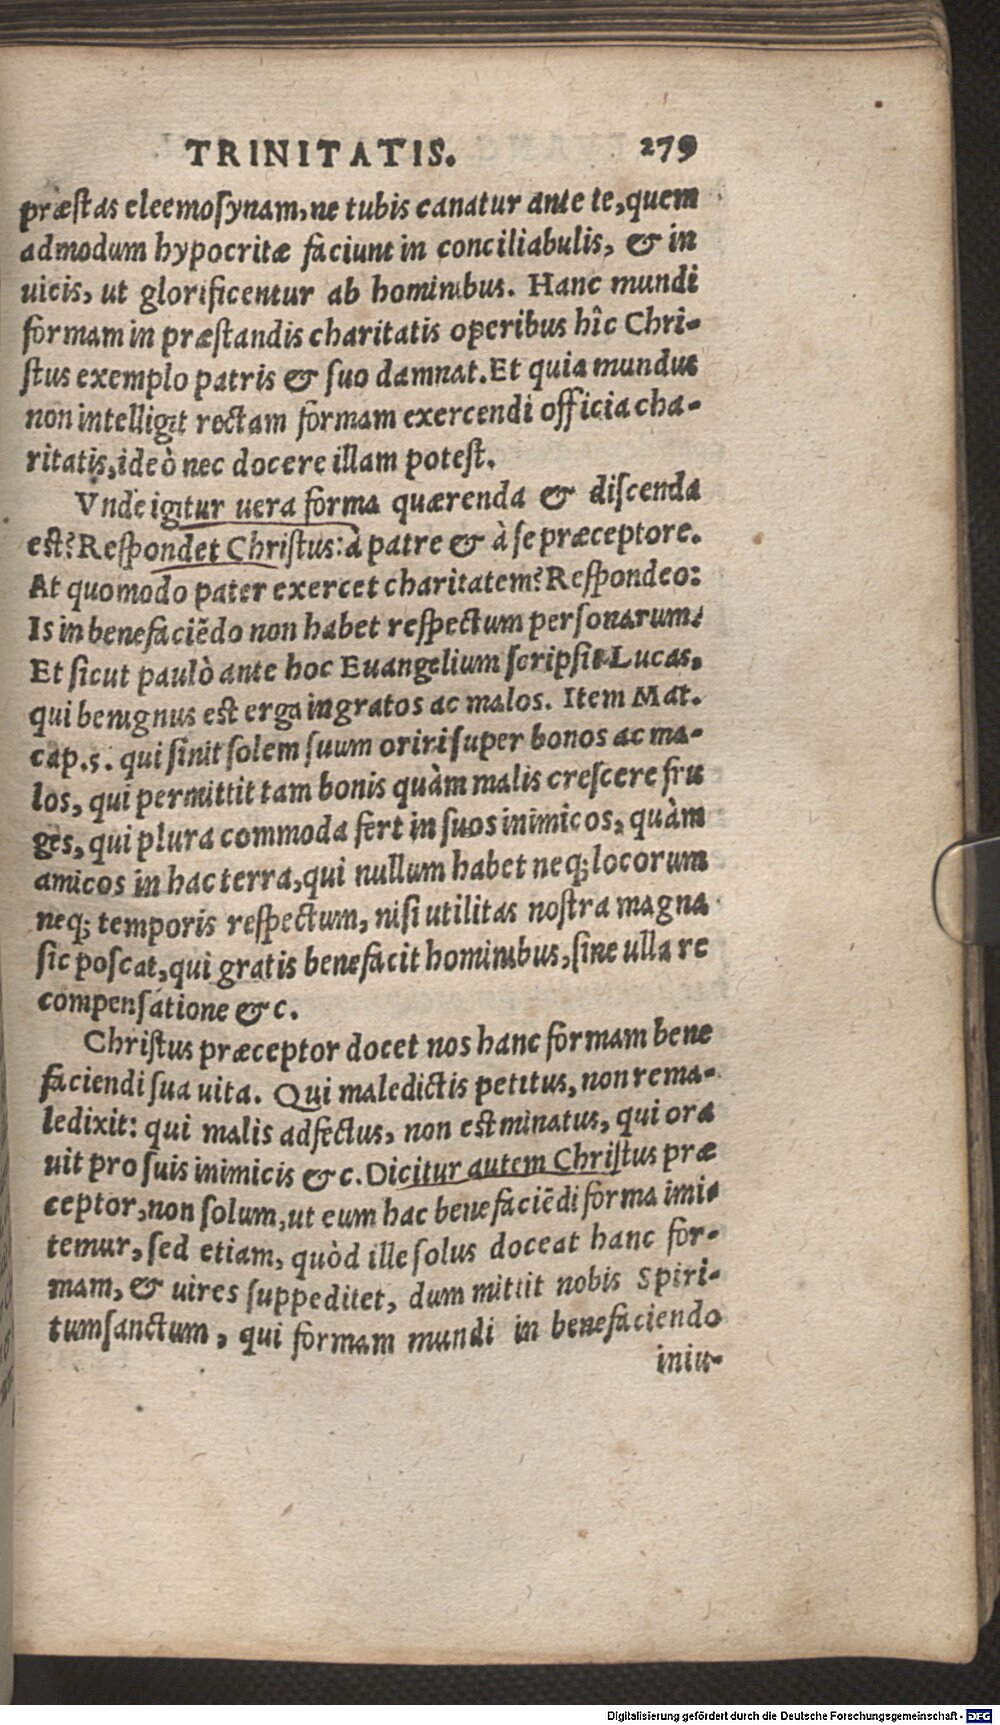 TRINITATIS. 279
præstas eleemosynam, ne tubis canatur ante te, quem
admodum hypocritæ faciunt in conciliabulis, & in
uicis, ut glorificentur ab hominibus. Hanc mundi
formam in præstandis charitatis operibus hîc Chri-
stus exemplo patris & suo damnat. Et quia mundus
non intelligit rectam formam exercendi officia cha-
ritatis, ideò nec docere illam potest.
Vnde igitur uera forma quærenda & discenda
est? Respondet Christus: à patre & à se præceptore.
At quomodo pater exercet charitatem? Respondeo:
Is in benefaciẽdo non habet respectum personarum:
Et sicut paulò ante hoc Euangelium scripsit Lucas,
qui benignus est erga ingratos ac malos. Item Mat.
cap. 5. qui sinit solem suum oriri super bonos ac ma-
los, qui permittit tam bonis quàm malis crescere fru
ges, qui plura commoda fert in suos inimicos, quàm
amicos in hac terra, qui nullum habet neq; locorum
neq; temporis respectum, nisi utilitas nostra magna
sic poscat, qui gratis benefacit hominibus, sine ulla re
compensatione & c.
Christus præceptor docet nos hanc formam bene
faciendi sua uita. Qui maledictis petitus, non rema-
ledixit: qui malis adfectus, non est minatus, qui ora
uit pro suis inimicis & c. Dicitur autem Christus præ
ceptor, non solum, ut eum hac benefaciẽdi forma imi-
temur, sed etiam, quòd ille solus doceat hanc for-
mam, & uires suppeditet, dum mittit nobis Spiri-
tumsanctum, qui formam mundi in benefaciendo
iniu-
Digitalisierung gefördert durch die Deutsche Forschungsgemeinschaft - DFG